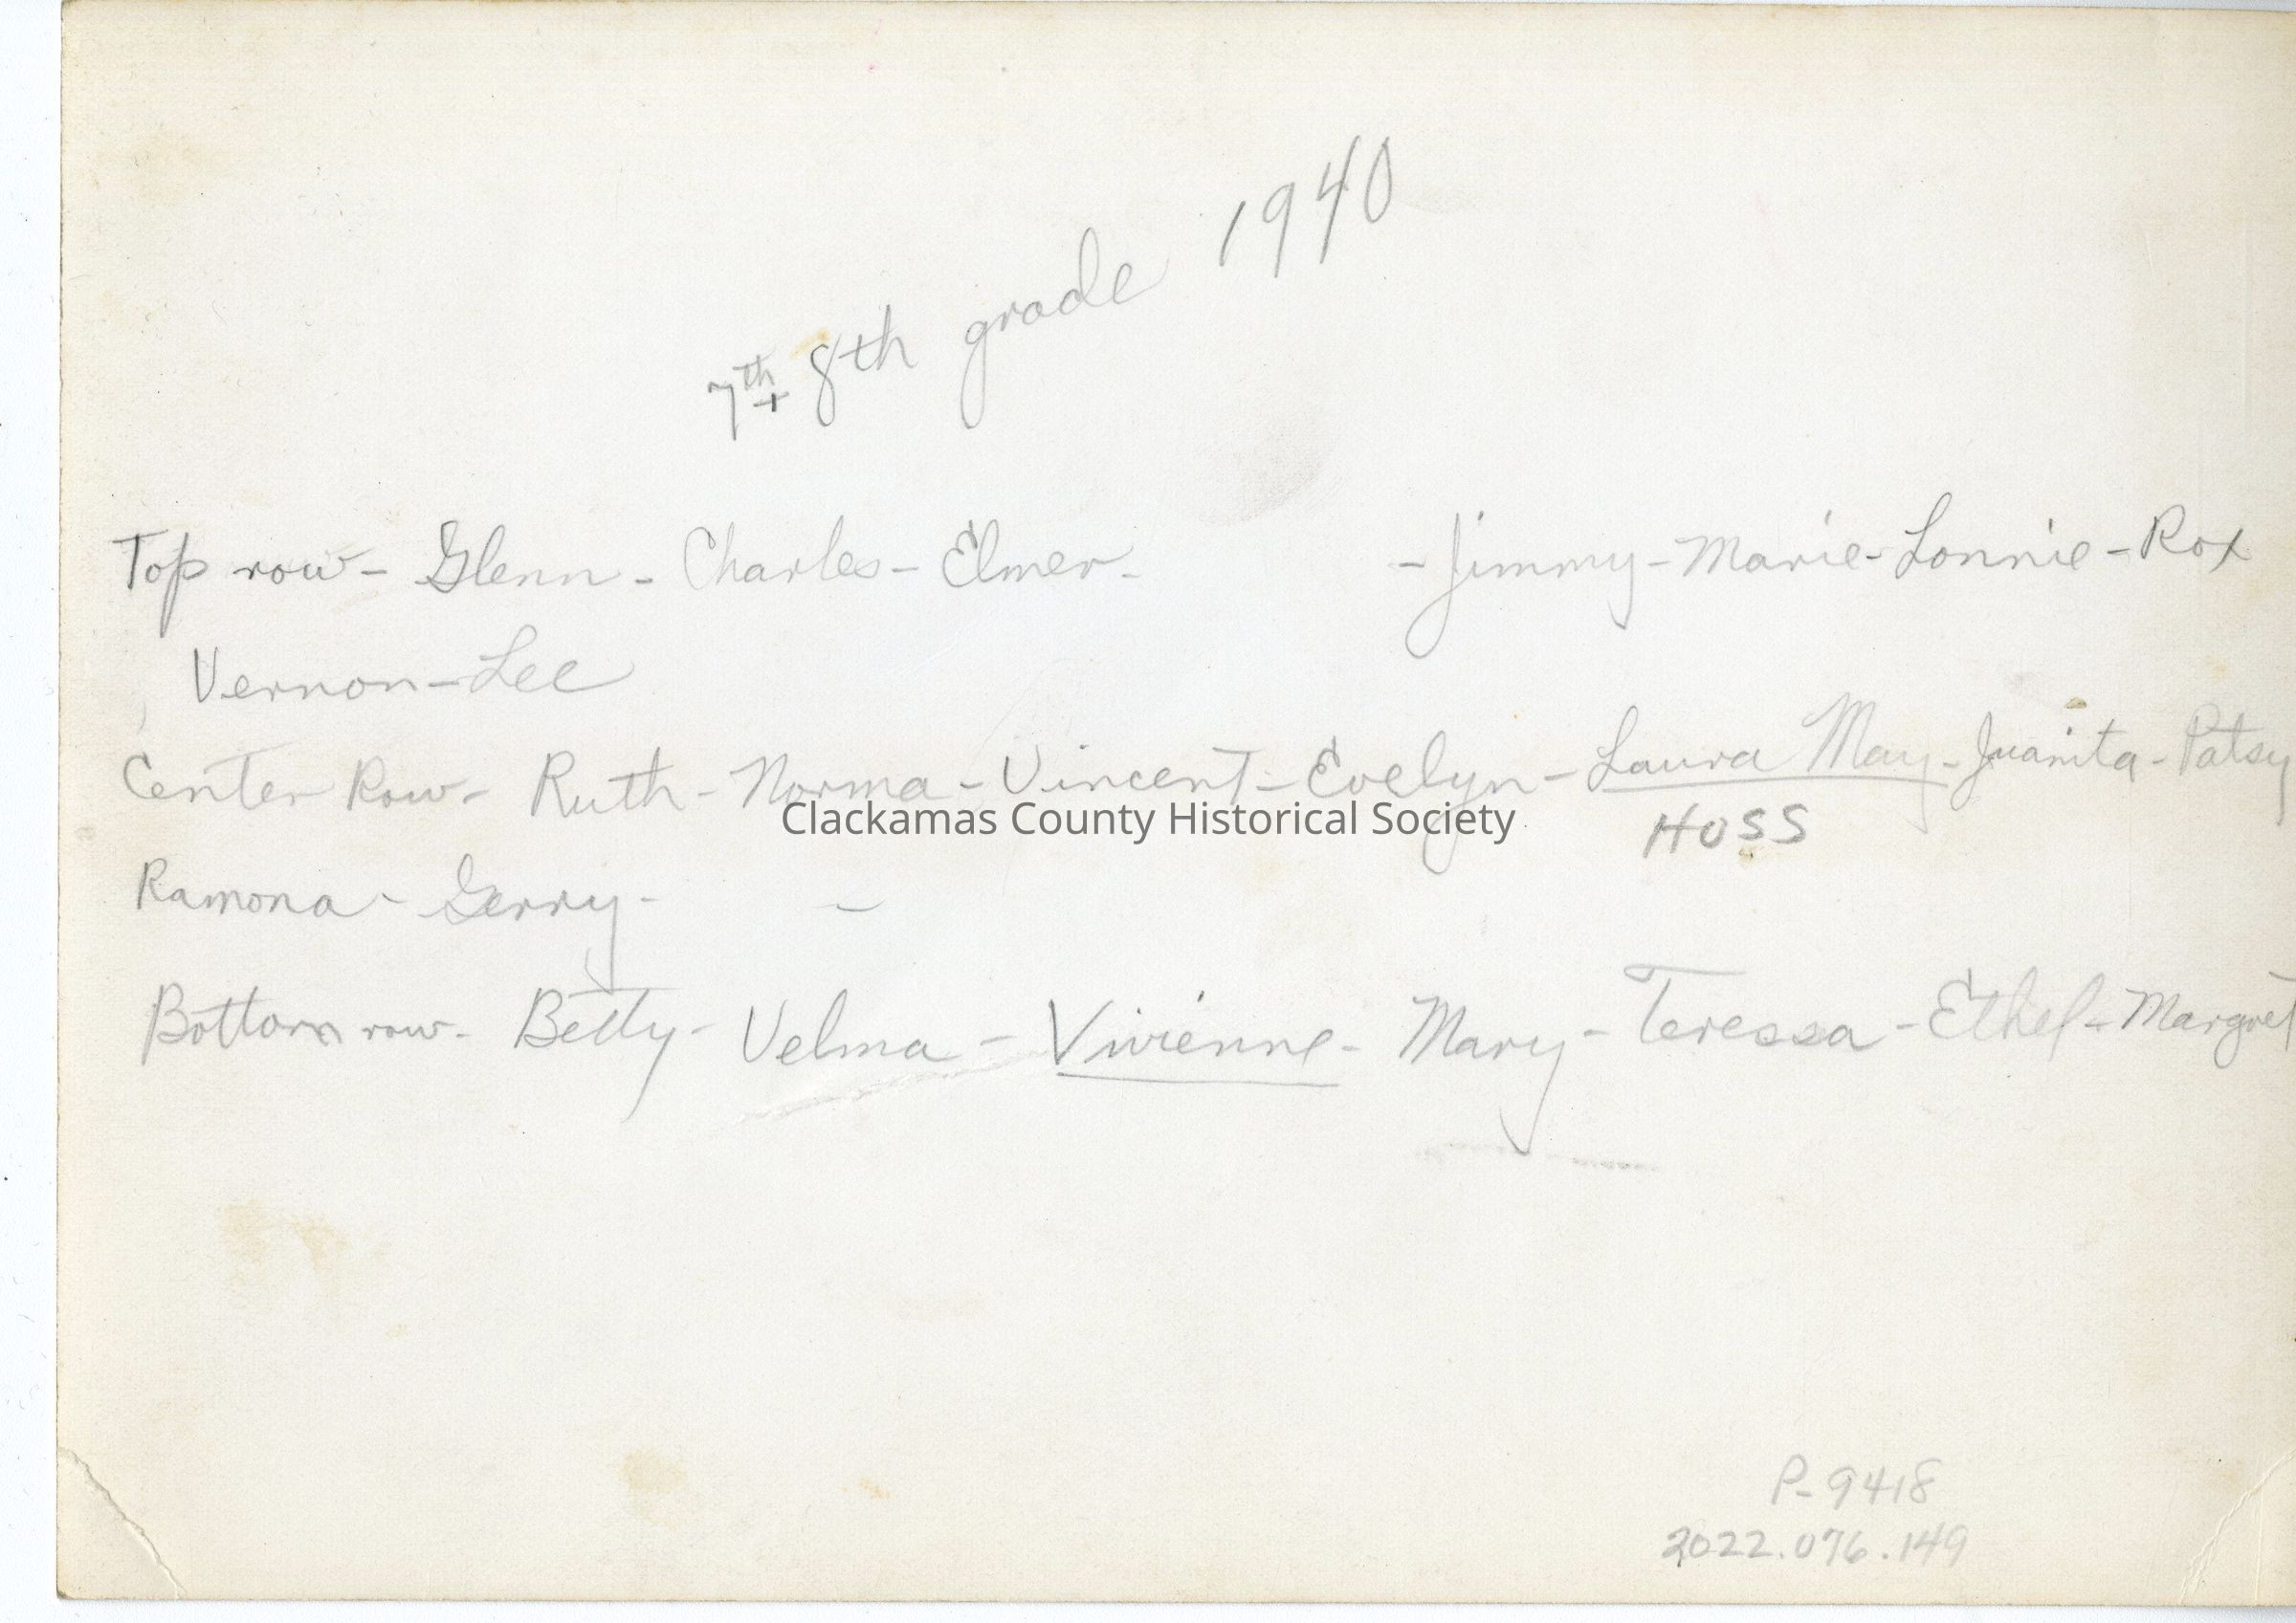 7th + 8th grade 1940
Top row - Glenn - Charles - Elmer - - Jimmy - Marie - Lonnie - Rox
Vernon - Lee
Center Row - Ruth - Norma - Vincent - Evelyn - Laura May - Juanita - Patsy
Clackamas County Historical Society
HOSS
Ramona - Gerry - -
Bottom row - Betty - Velma - Vivienne - Mary - Teressa - Ethel - Margret
P-9418
2022.076.149